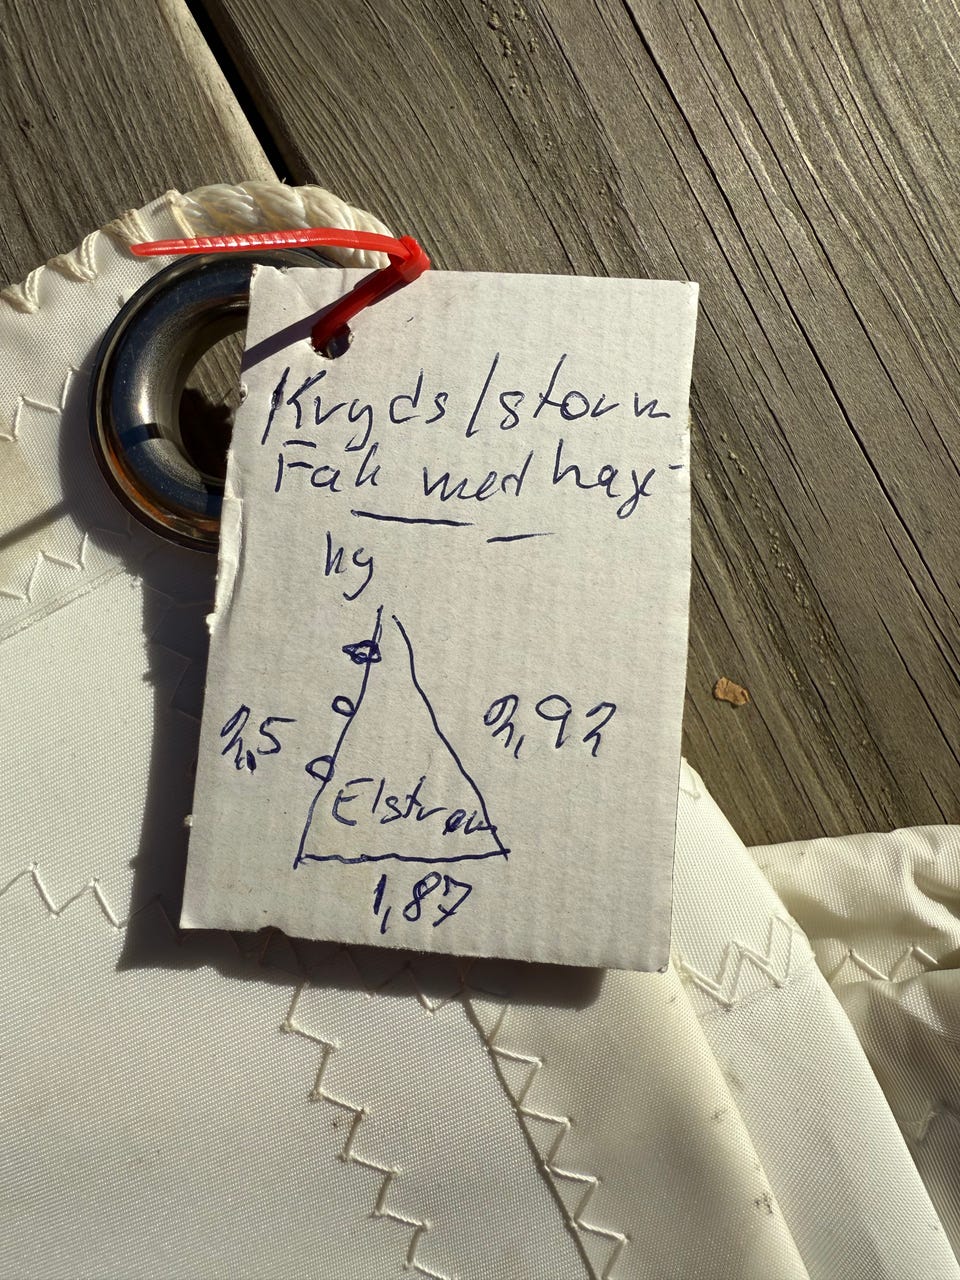 Kryds/storm
Fok med hage
ny
2,5
2,92
Elstrøm
1,87